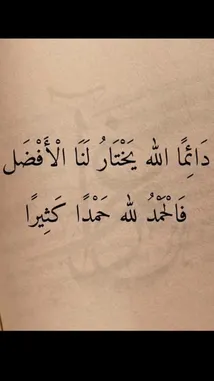 دَائِمًا الله يَخْتَارُ لَنَا الْأَفْضَل
فَالْحَمْدُ لله حَمْدًا كَثِيرًا